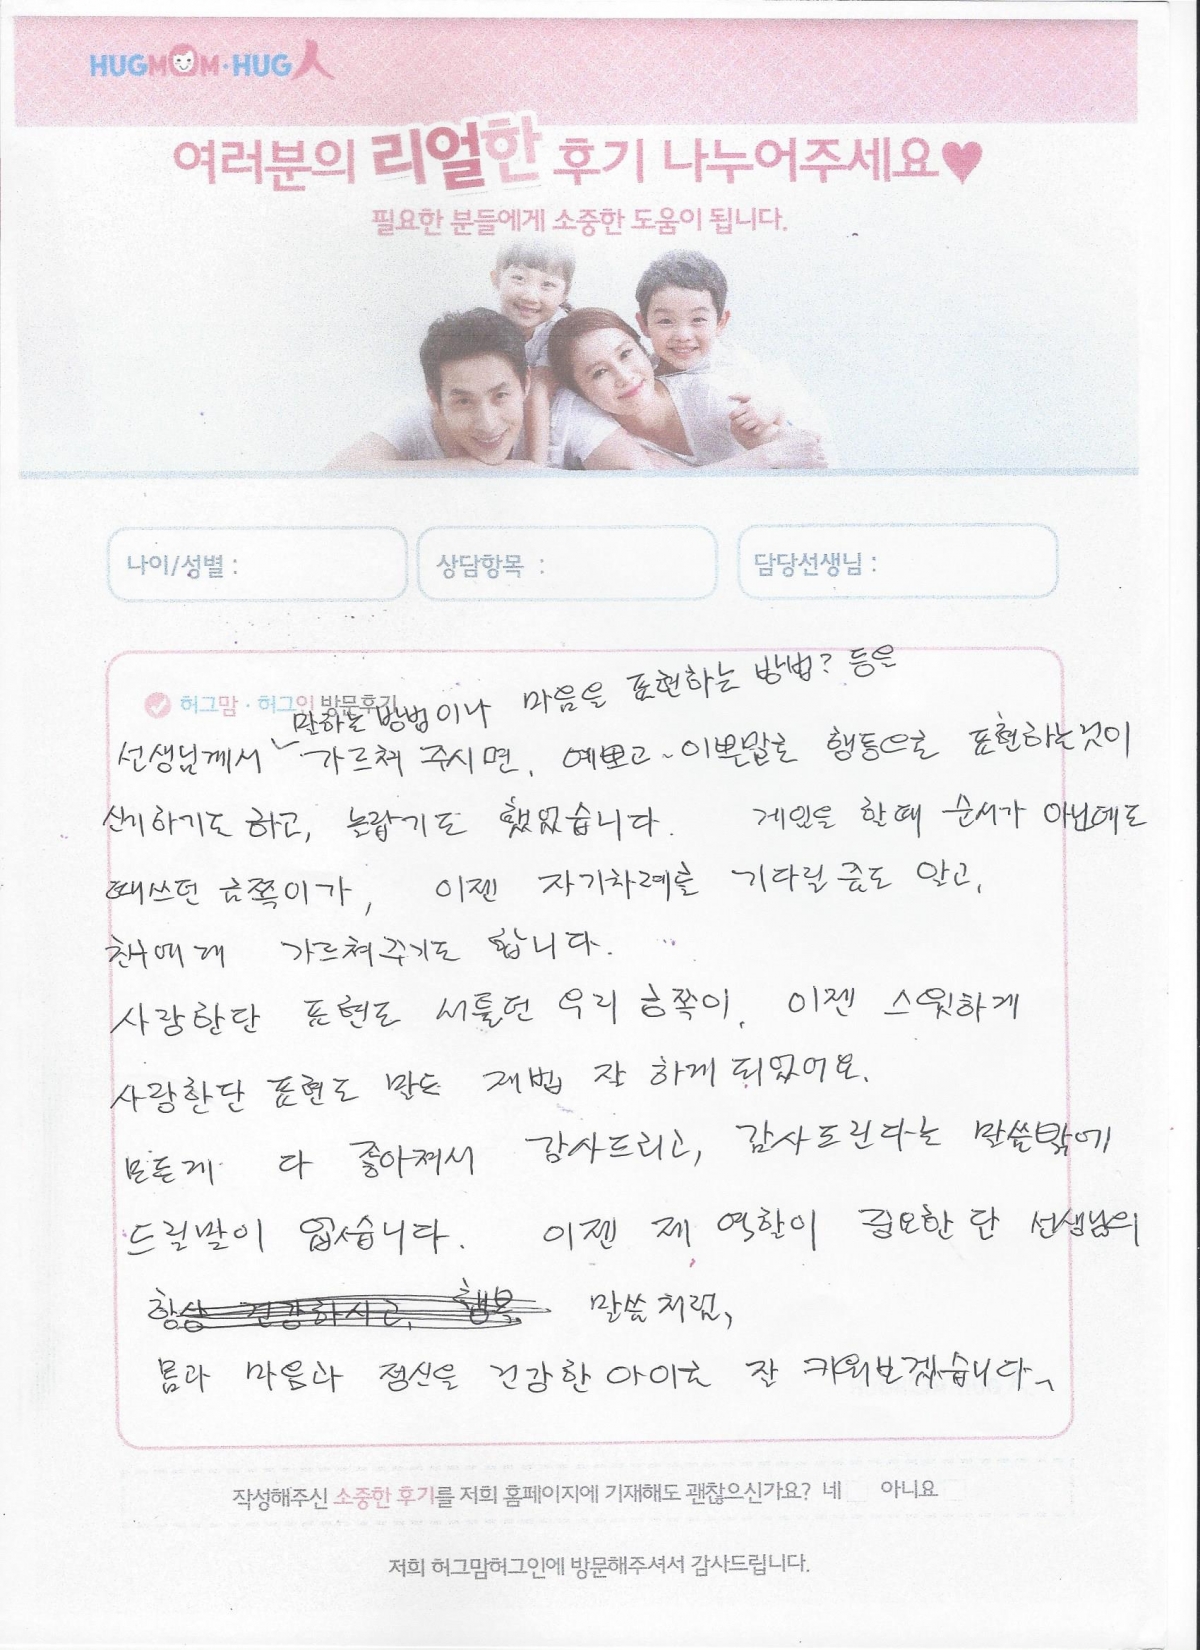 HUGMOM·HUG人
여러분의 리얼한 후기 나누어주세요♥
필요한 분들에게 소중한 도움이 됩니다.
나이/성별 :
상담항목 :
담당선생님 :
허그맘·허그인 방문후기
말하는 방법이나 마음을 표현하는 방법? 등을
선생님께서 가르쳐 주시면, 예쁘고~ 이쁜말로 행동으로 표현하는것이
신기하기도 하고, 놀랍기도 했었습니다. 게임을 할때 순서가 아닌데도
떼쓰던 금쪽이가, 이젠 자기차례를 기다릴 줄도 알고,
친구에게 가르쳐주기도 합니다.
사랑한단 표현도 서툴던 우리 금쪽이, 이젠 스윗하게
사랑한단 표현도 말도 제법 잘 하게 되었어요.
모든게 다 좋아져서 감사드리고, 감사드린다는 말씀밖에
드릴말이 없습니다. 이젠 제 역할이 중요한 단 선생님의
항상 건강하시고, 행복 말씀처럼,
몸과 마음과 정신을 건강한 아이로 잘 키워보겠습니다.
작성해주신 소중한 후기를 저희 홈페이지에 기재해도 괜찮으신가요? 네 아니요
저희 허그맘허그인에 방문해주셔서 감사드립니다.